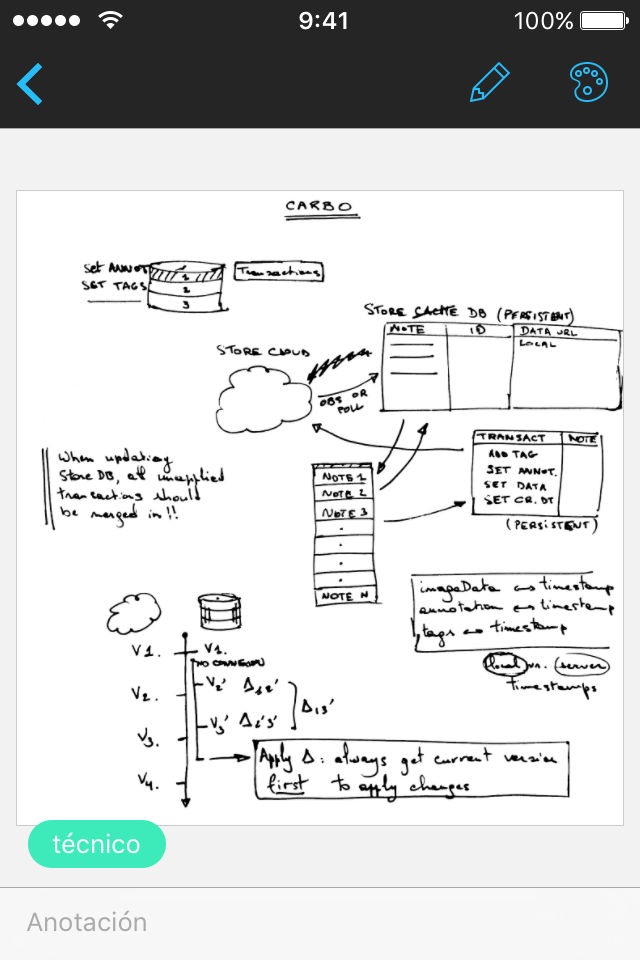 9:41
100%
CARBO
Set ANNOT
SET TAGS
1
2
3
Transactions
STORE CACHE DB (PERSISTENT)
NOTE
ID
DATA URL
LOCAL
STORE CLOUD
OBS OR
POLL
TRANSACT
NOTE
ADD TAG
SET ANNOT.
SET DATA
SET CR. DT
(PERSISTENT)
When updating
Store DB, all unapplied
transactions should
be merged in!!
NOTE 1
NOTE 2
NOTE 3
NOTE N
imageData ↔ timestamp
annotation ↔ timestamp
tags ↔ timestamp
local vs. server
timestamps
V1.
V1.
NO CONNEXION
V2.
V2' Δ12'
Δ13'
V3' Δ2'3'
V3.
V4.
Apply Δ: always get current version
first to apply changes
técnico
Anotación